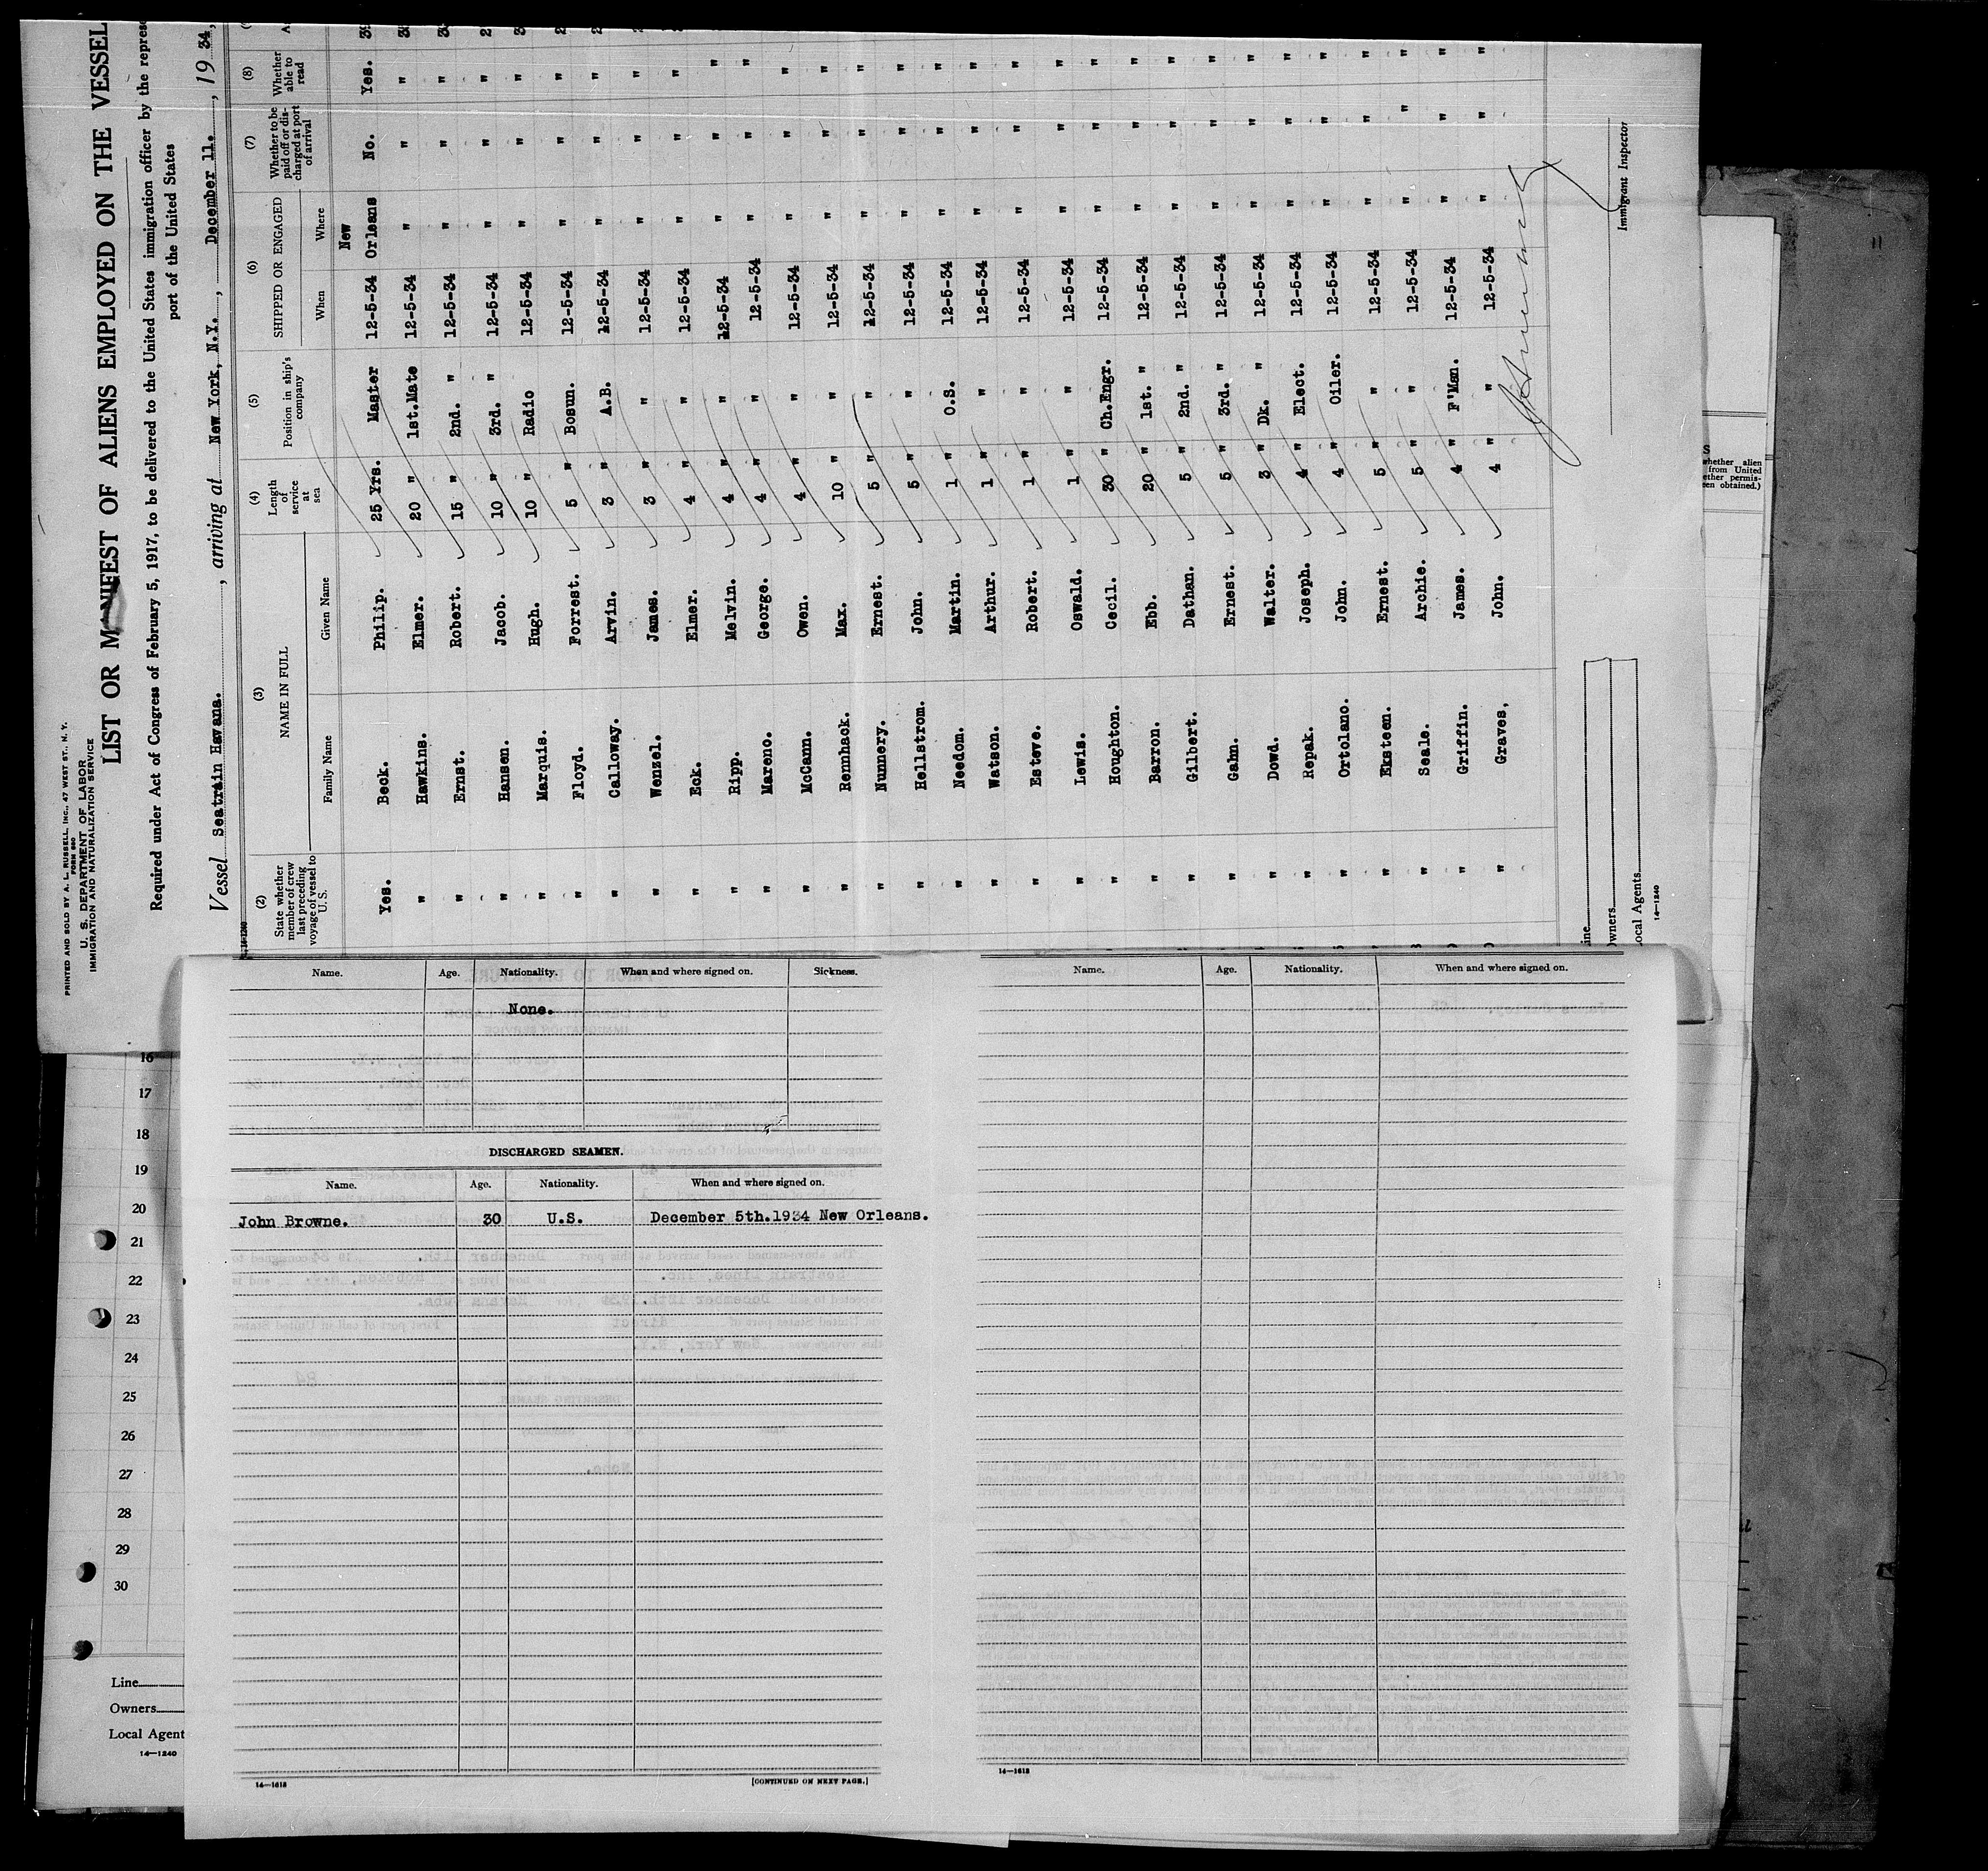 PRINTED AND SOLD BY A. L. RUSSELL, INC., 47 WEST ST., N. Y.
FORM 680
U. S. DEPARTMENT OF LABOR
IMMIGRATION AND NATURALIZATION SERVICE
LIST OR MANIFEST OF ALIENS EMPLOYED ON THE VESSEL
Required under Act of Congress of February 5, 1917, to be delivered to the United States immigration officer by the repres
port of the United States
Vessel Seatrain Havana. , arriving at New York, N.Y. , December 11. , 19 34,
(2) (3) (4) (5) (6) (7) (8)
State whether member of crew last preceding voyage of vessel to U. S. NAME IN FULL Length of service at sea Position in ship's company SHIPPED OR ENGAGED Whether to be paid off or discharged at port of arrival Whether able to read
Family Name Given Name When Where
Yes. Beck. Philip. 25 Yrs. Master 12-5-34 New Orleans No. Yes.
" Hawkins. Elmer. 20 " 1st.Mate 12-5-34 " " "
" Ernst. Robert. 15 " 2nd. " 12-5-34 " " "
" Hansen. Jacob. 10 " 3rd. " 12-5-34 " " "
" Marquis. Hugh. 10 " Radio 12-5-34 " " "
" Floyd. Forrest. 5 " Bosun. 12-5-34 " " "
" Calloway. Arvin. 3 " A.B. 12-5-34 " " "
" Wenzel. James. 3 " " 12-5-34 " " "
" Eck. Elmer. 4 " " 12-5-34 " " "
" Ripp. Melvin. 4 " " 12-5-34 " " "
" Mareno. George. 4 " " 12-5-34 " " "
" McCann. Owen. 4 " " 12-5-34 " " "
" Rennhack. Max. 10 " " 12-5-34 " " "
" Nunnery. Ernest. 5 " " 12-5-34 " " "
" Hellstrom. John. 5 " " 12-5-34 " " "
" Needom. Martin. 1 " O.S. 12-5-34 " " "
" Watson. Arthur. 1 " " 12-5-34 " " "
" Esteve. Robert. 1 " " 12-5-34 " " "
" Lewis. Oswald. 1 " " 12-5-34 " " "
" Houghton. Cecil. 30 " Ch.Engr. 12-5-34 " " "
" Barron. Ebb. 20 " 1st. " 12-5-34 " " "
" Gilbert. Dathan. 5 " 2nd. " 12-5-34 " " "
" Gahm. Ernest. 5 " 3rd. " 12-5-34 " " "
" Dowd. Walter. 3 " Dk. " 12-5-34 " " "
" Repak. Joseph. 4 " Elect. 12-5-34 " " "
" Ortolano. John. 4 " Oiler. 12-5-34 " " "
" Eksteen. Ernest. 5 " " 12-5-34 " " "
" Seale. Archie. 5 " " 12-5-34 " " "
" Griffin. James. 4 " F'Man. 12-5-34 " " "
" Graves, John. 4 " " 12-5-34 " " "
Immigrant Inspector
ine
wners
ocal Agents
14—1240
Name. Age. Nationality. When and where signed on. Sickness.
None.
DISCHARGED SEAMEN.
Name. Age. Nationality. When and where signed on.
John Browne. 30 U.S. December 5th.1934 New Orleans.
14—1613
[CONTINUED ON NEXT PAGE.]
Name. Age. Nationality. When and where signed on.
14—1613
16
17
18
19
20
21
22
23
24
25
26
27
28
29
30
Line
Owners
Local Agent
14—1240
S
whether alien
from United
ether permis-
een obtained.)